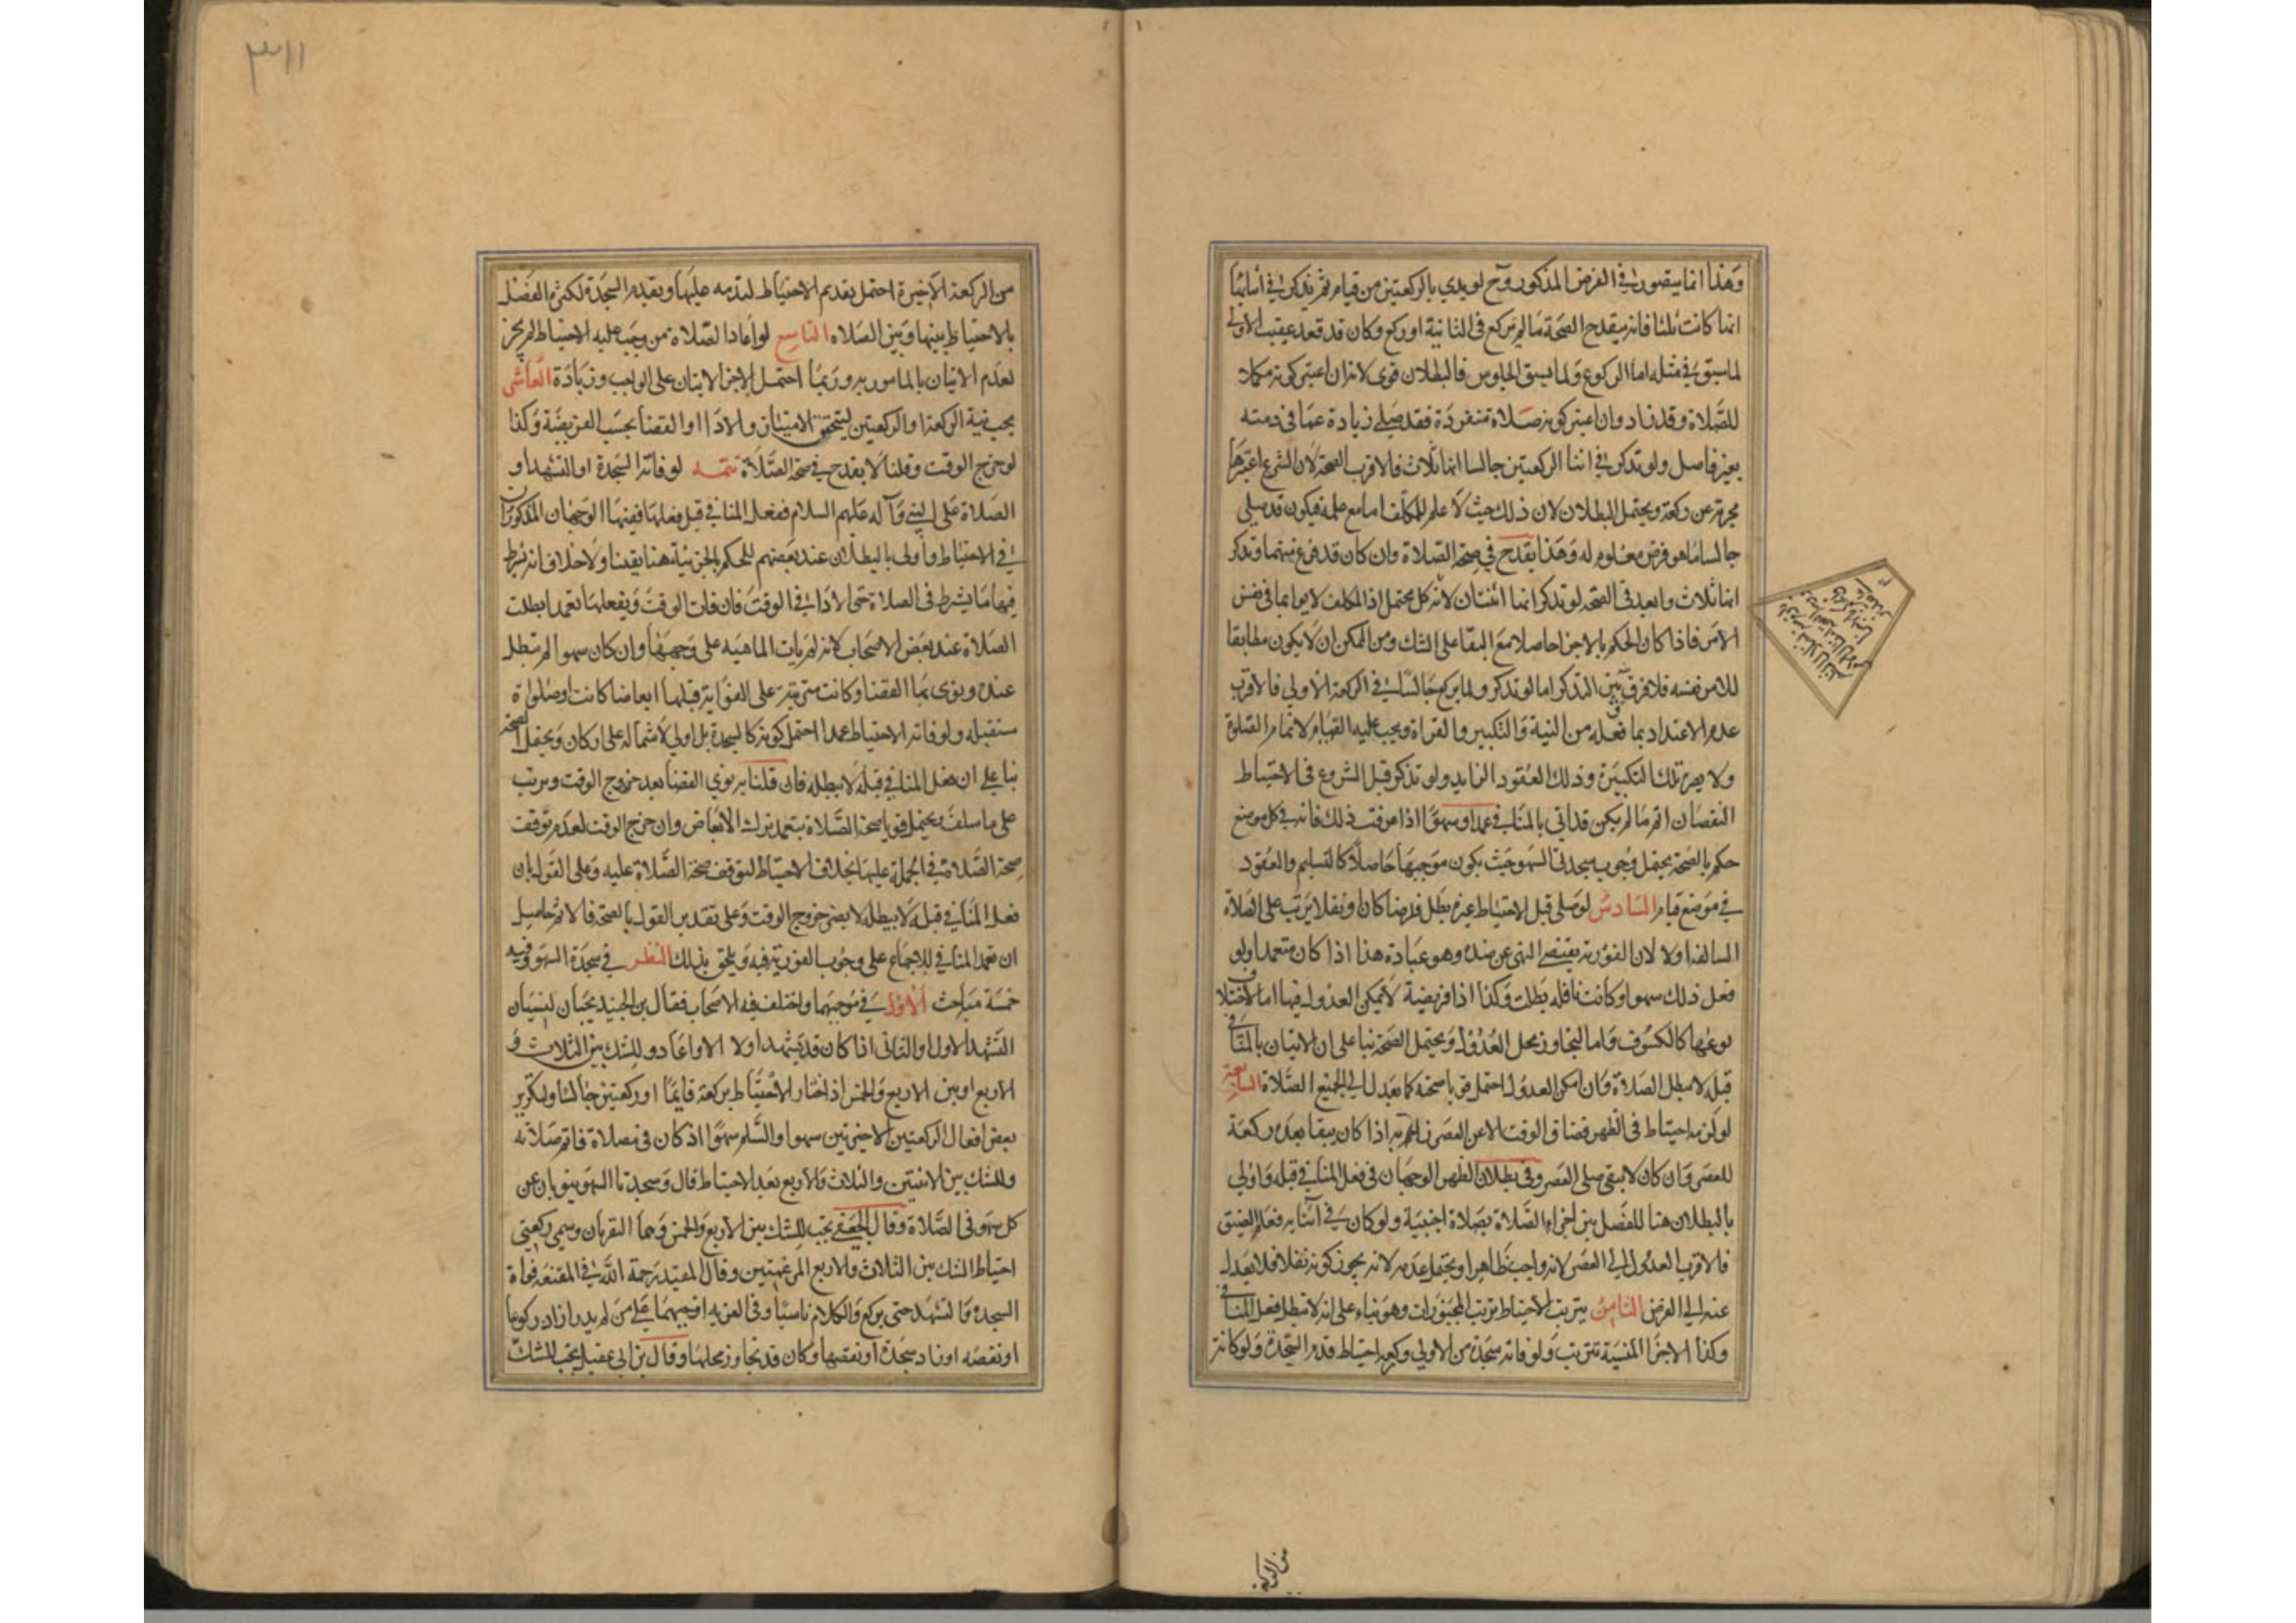 وهذا انما يتصور في الفرض المذكور وح لو بدي بالركعتين من قيام ثم تذكر في أثنائها
انها كانت ثلثا فانه يقدح الصحة ما لم يركع في الثانية او ركع وكان قد قعد عقيب الأولى
لما سبق في مثله اما الركوع ولما يسبق الجلوس فالبطلان قوى لانه ان اعتبر كونه مكملا
للصلاة وقد زاد وان اعتبر كونه صلاة منفردة فقد صلى زيادة عما في ذمته
بغير فاصل ولو تذكر في اثنا الركعتين جالسا انها ثلاث فالاقرب الصحة لان الشرع اعتبرها
مجزية عن ركعة ويحتمل البطلان لان ذلك حيث لا علم للمكلف اما مع علمه فيكون قد صلى
جالسا ما هو فرض معلوم له وهذا يقدح في صحة الصلاة وان كان قد فرغ منهما وتذكر
انها ثلاث وابعد في الصحة لو تذكر انها اثنتان لانه كل محتمل اذ المكلف لا يوا بما في نفس
الامر فاذا كان الحكم بالاجزا حاصلا مع البقا على الشك ومن الممكن ان لا يكون مطابقا
للامر نفسه فلا فرق بين التذكر اما لو تذكر ولما يركع جالسا في الركعة الاولى فالاقرب
عدم الاعتداد بما فعله من النية والتكبير والقراة ويجب عليه القيام لاتمام الصلوة
ولا يضر تلك التكبيرة وذلك القعود الزايد ولو تذكر قبل الشروع في الاحتياط
النقصان اتم ما لم يكن قد اتى بالمنافي عمدا وسهوا اذا عرفت ذلك فانه في كل موضع
حكم بالصحة يحتمل وجوب سجدتي السهو حيث يكون موجبها حاصلا كالتسليم والقعود
في موضع قيام السادس لو صلى قبل الاحتياط غيره بطل فرضا كان او نفلا يترتب على الصلاة
السالفة اولا لان الفورية يقتضى النهى عن ضده وهو عبادة هذا اذا كان متعمدا ولو
فعل ذلك سهوا وكانت نافلة بطلت وكذا اذا فريضة لا يمكن العدول فيها اما لاختلاف
نوعها كالكسوف واما لتجاوز محل العدول ويحتمل الصحة بنا على ان الاتيان بالمنافي
قبله لا يبطل الصلاة وان امكن العدول احتمل قويا صحته كما يعدل الى الجميع الصلاة السابعة
لو لزمه احتياط في الظهر فضاق الوقت الا عن العصر زاحم به اذا كان يبقا بعده ركعة
للعصر وان كان لا يبقى صلى العصر وفي بطلان الظهر الوجهان في فعل المنافي قبله واولى
بالبطلان هنا للفصل بين اجزاء الصلاة بصلاة اجنبية ولو كان في أثنايه فعلم الضيق
فالاقرب العدول الى العصر لانه واجب ظاهرا ويحتمل عدمه لانه يجوز كونه نفلا فلا يعدل
عنه الى الفرض الثامن يترتب الاحتياط ترتيب المجبورات وهو بناء على انه لا تبطل فعل المنافي
وكذا الاجزا المنسية تترتب ولو فاته سجدة من الاولى وركعة احتياط قدم السجدة ولو كانت
من الركعة
من الركعة الأخيرة احتمل تقديم الاحتياط لتقدمه عليها وتقديم السجدة لكثرة الفصل
بالاحتياط بينها وبين الصلاه التاسع لو اعاد الصلاة من وجب عليه الاحتياط لم يجز
لعدم الاتيان بالمامور به وربما احتمل الاجزا لاتيان على الواجب وزيادة العاشر
يجب نية الركعة او الركعتين ليتحقق الامتثال والادا او القضا بحسب الفريضة وكذا
لو خرج الوقت وقلنا لا يقدح في صحة الصلاة تتمه لو فاته السجدة او التشهد او
الصلاة على النبي وآله عليهم السلام ففعل المنافي قبل فعلها ففيها الوجهان المذكوران
في الاحتياط واولى بالبطلان عند بعضهم للحكم بالجزئية هنا يقينا ولا خلاف انه شرط
فيها ما يشرط في الصلاة حتى الأداء في الوقت فان فات الوقت ويفعلها تعمدا بطلت
الصلاة عند بعض الاصحاب لانه لم يات الماهيه على وجهها وان كان سهوا لم تبطل
عنده ونوى بها القضا وكانت مترتبة على الفوايت قبلها ابعاضا كانت او صلوات
مستقبلة ولو فاته الاحتياط عمدا احتمل كونه كالسجدة بل اولى لاشتماله على اركان ويحتمل الصحة
بنا على ان فعل المنافي قبله لا يبطله فان قلنا به نوى القضا بعد خروج الوقت وترتب
على ما سلف ويحتمل قويا صحة الصلاة بتعمد ترك الابعاض وان خرج الوقت لعدم توقف
صحة الصلاة في الجملة عليها بخلاف الاحتياط لتوقف صحة الصلاة عليه وعلى القول بان
فعل المنافي قبله لا يبطله لا يضر خروج الوقت وعلى تقدير القول بالصحة فالاثم حاصل
ان تعمد المنافي للاجماع على وجوب الفورية فيه ويلحق بذلك النظر في سجدة السهو وفيه
خمسة مباحث الأول في موجبهما واختلف فيه الاصحاب فقال بن الجنيد يجبان لنسيان
التشهد الاول او الثانى اذا كان قد تشهد اولا الا واعاد وللشك بين الثلاث و
الاربع او بين الاربع والخمس اذ اختار الاحتياط بركعة قايما او ركعتين جالسا ولتكرير
بعض افعال الركعتين الاخيرتين سهوا والسلم سهوا اذ كان في صلاة فاتم صلاته
وللشك بين الاثنتين والثلاث والأربع بعد الاحتياط قال وسجدتا السهو ينوبان عن
كل سهو في الصلاة وقال الجعفي تجب للشك بين الأربع والخمس وهما النقرتان وسمي ركعتي
احتياط الشك بين الثلاث والاربع المرغمتين وقال المفيد رحمة الله في المقنعة فوات
السجدة والتشهد حتى يركع والكلام ناسيا وفي العزيه اوجبهما على من لم يدر ازاد ركوعا
او نقصه او زاد سجدة او نقصها وكان قد تجاوز محلها وقال بن ابى عقيل يجب للشك
٣١١